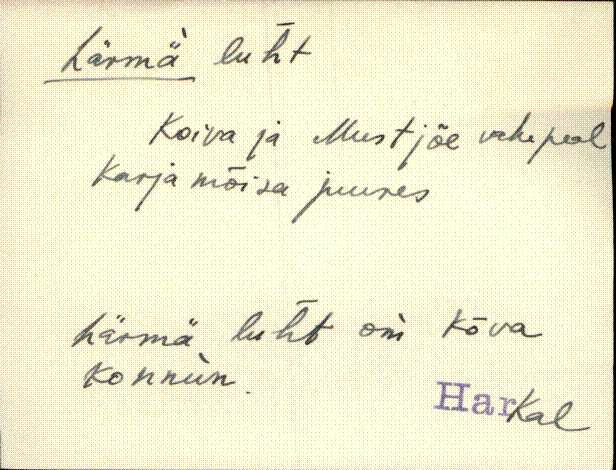 Härmä̀ luh̄t
Koiva ja Mustjõe vahepeal
Karjamõisa juures
härmä luh̄t om̀ Kõva
Konnùn.
Har Kal